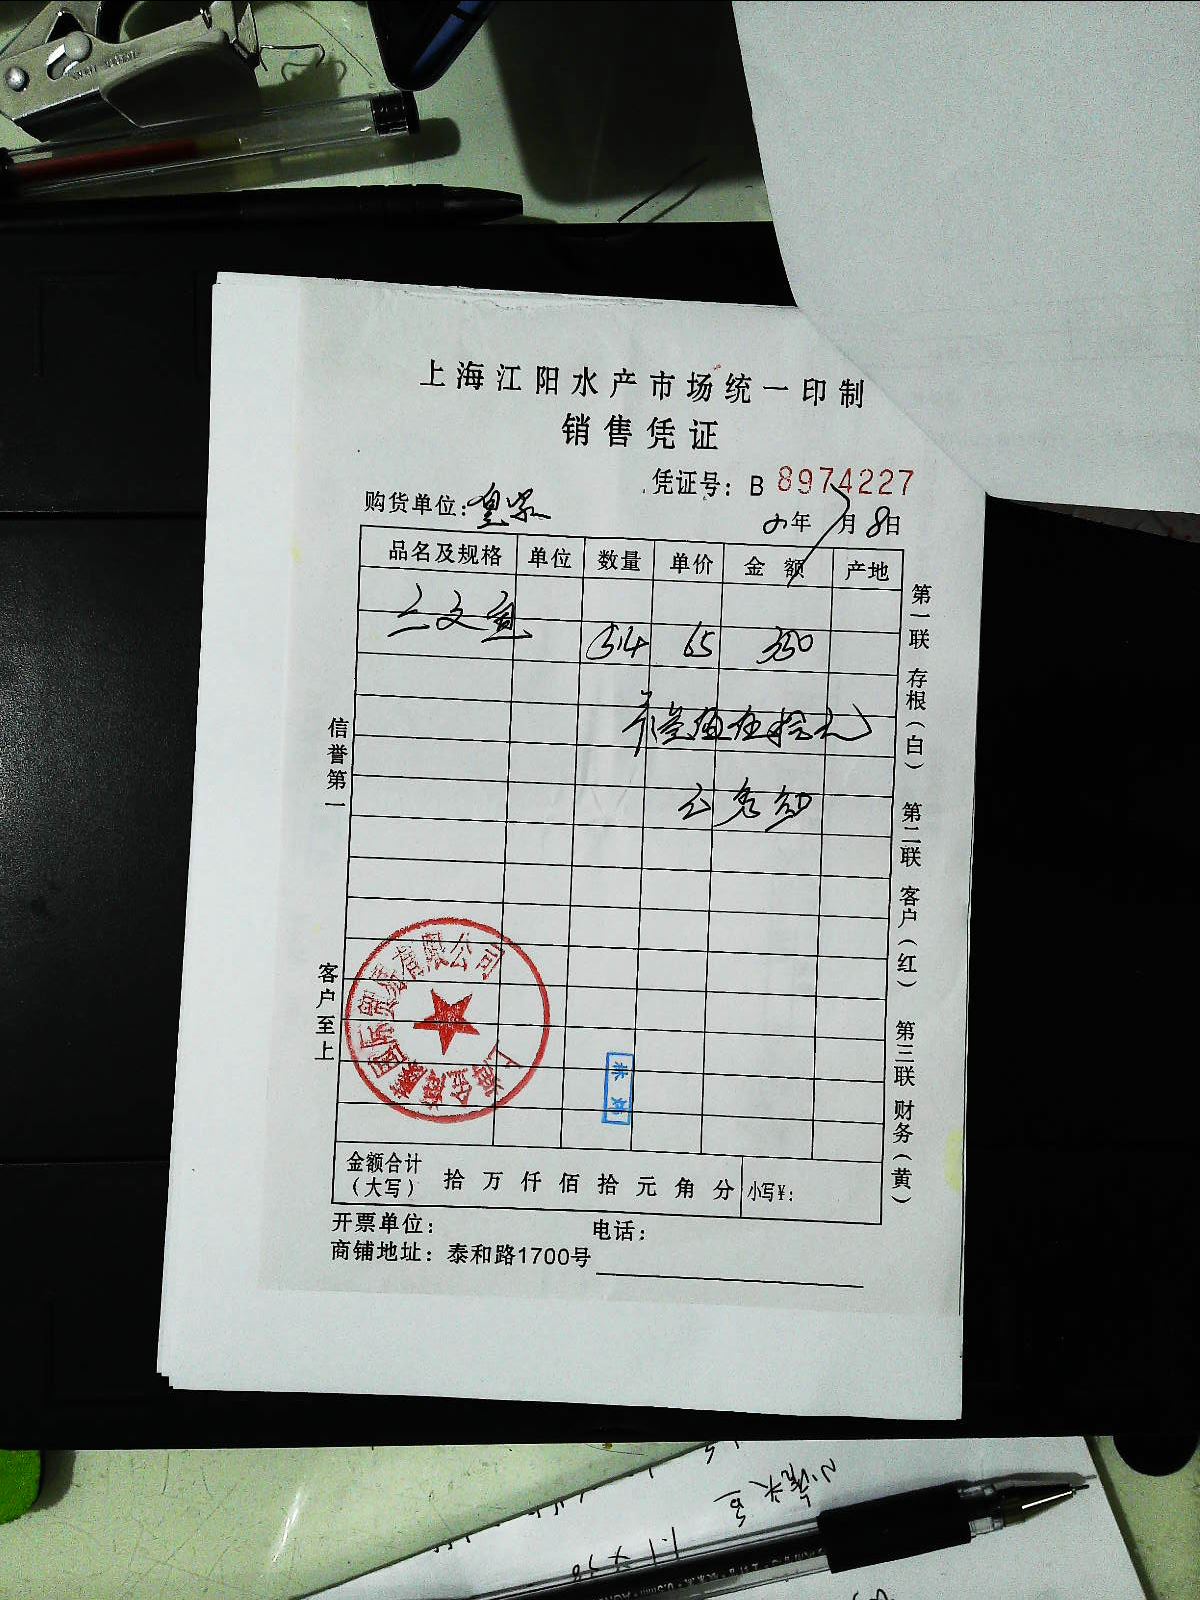 上海江阳水产市场统一印制
销售凭证
凭证号：B 8974227
购货单位：皇家
年 月 8日
品名及规格 单位 数量 单价 金额 产地
三文鱼 514 65 350
叁佰伍拾元
第一联 存根（白） 第二联 客户（红） 第三联 财务（黄）
信誉第一
客户至上
国际贸易有限公司
金额合计（大写） 拾 万 仟 佰 拾 元 角 分 小写￥：
开票单位： 电话：
商铺地址：泰和路1700号